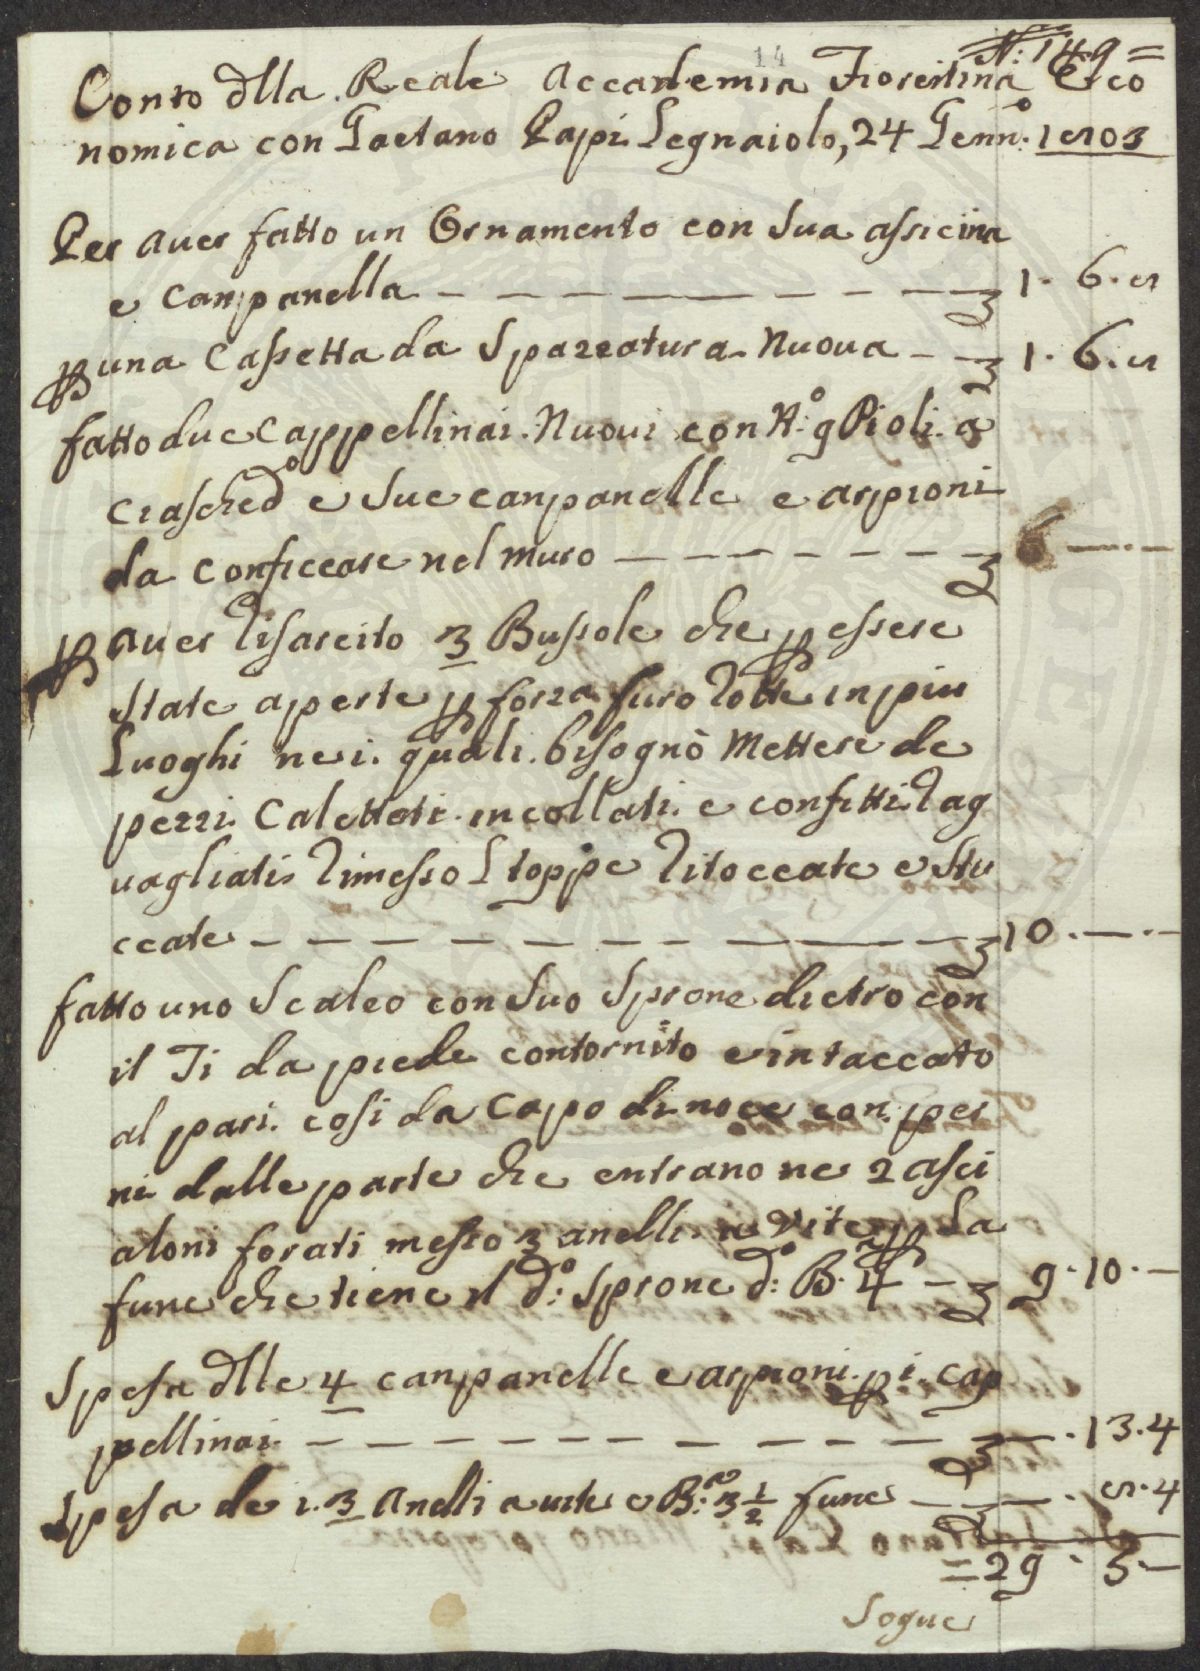 14
N: 149=
Conto dlla Reale Accademia Fiorentina Eco
nomica con Gaetano Papi Legnaiolo, 24 Genn.º 1803
Per aver fatto un Ornamento con Sua assicina
e Canpanella — — — — — — — £ 1. 6. 8
p una Cassetta da Spazzatura Nuova — £ 1. 6. 8
fatto due Cappellinai Nuovi con N.º 9 Pioli a
ciasched.º e Sue canpanelle e arpioni
da Conficcare nel Muro — — — — — — £ 6 — . —
p aver risarcito 3 Bussole che p essere
State aperte p forza furo rotte in piu
Luoghi nei quali bisognò Mettere de
pezzi Calettati incollati e confitti rag
uagliati rimesso Stoppe ritoccate e Stu
ccate — — — — — — — — — — £ 10 . — . —
fatto uno Scaleo con Suo Sprone dietro con
il Ti da piede contornito e intaccato
al pari cosi da Capo di noce con per
ni dalle parte che entrano ne 2 asci
aloni forati messo 3 anelli a Vite p La
fune che tiene il d.º Sprone d.º B.ª 4 — £ 9. 10. —
Spesa dlle 4 canpanelle e arpioni p i cap
pellinai — — — — — — — — — £ — . 13. 4
Spesa de i 3 Anelli a vite e B.ª 3 1/2 fune — £ — . 8. 4
= 29 . 5. —
Segue